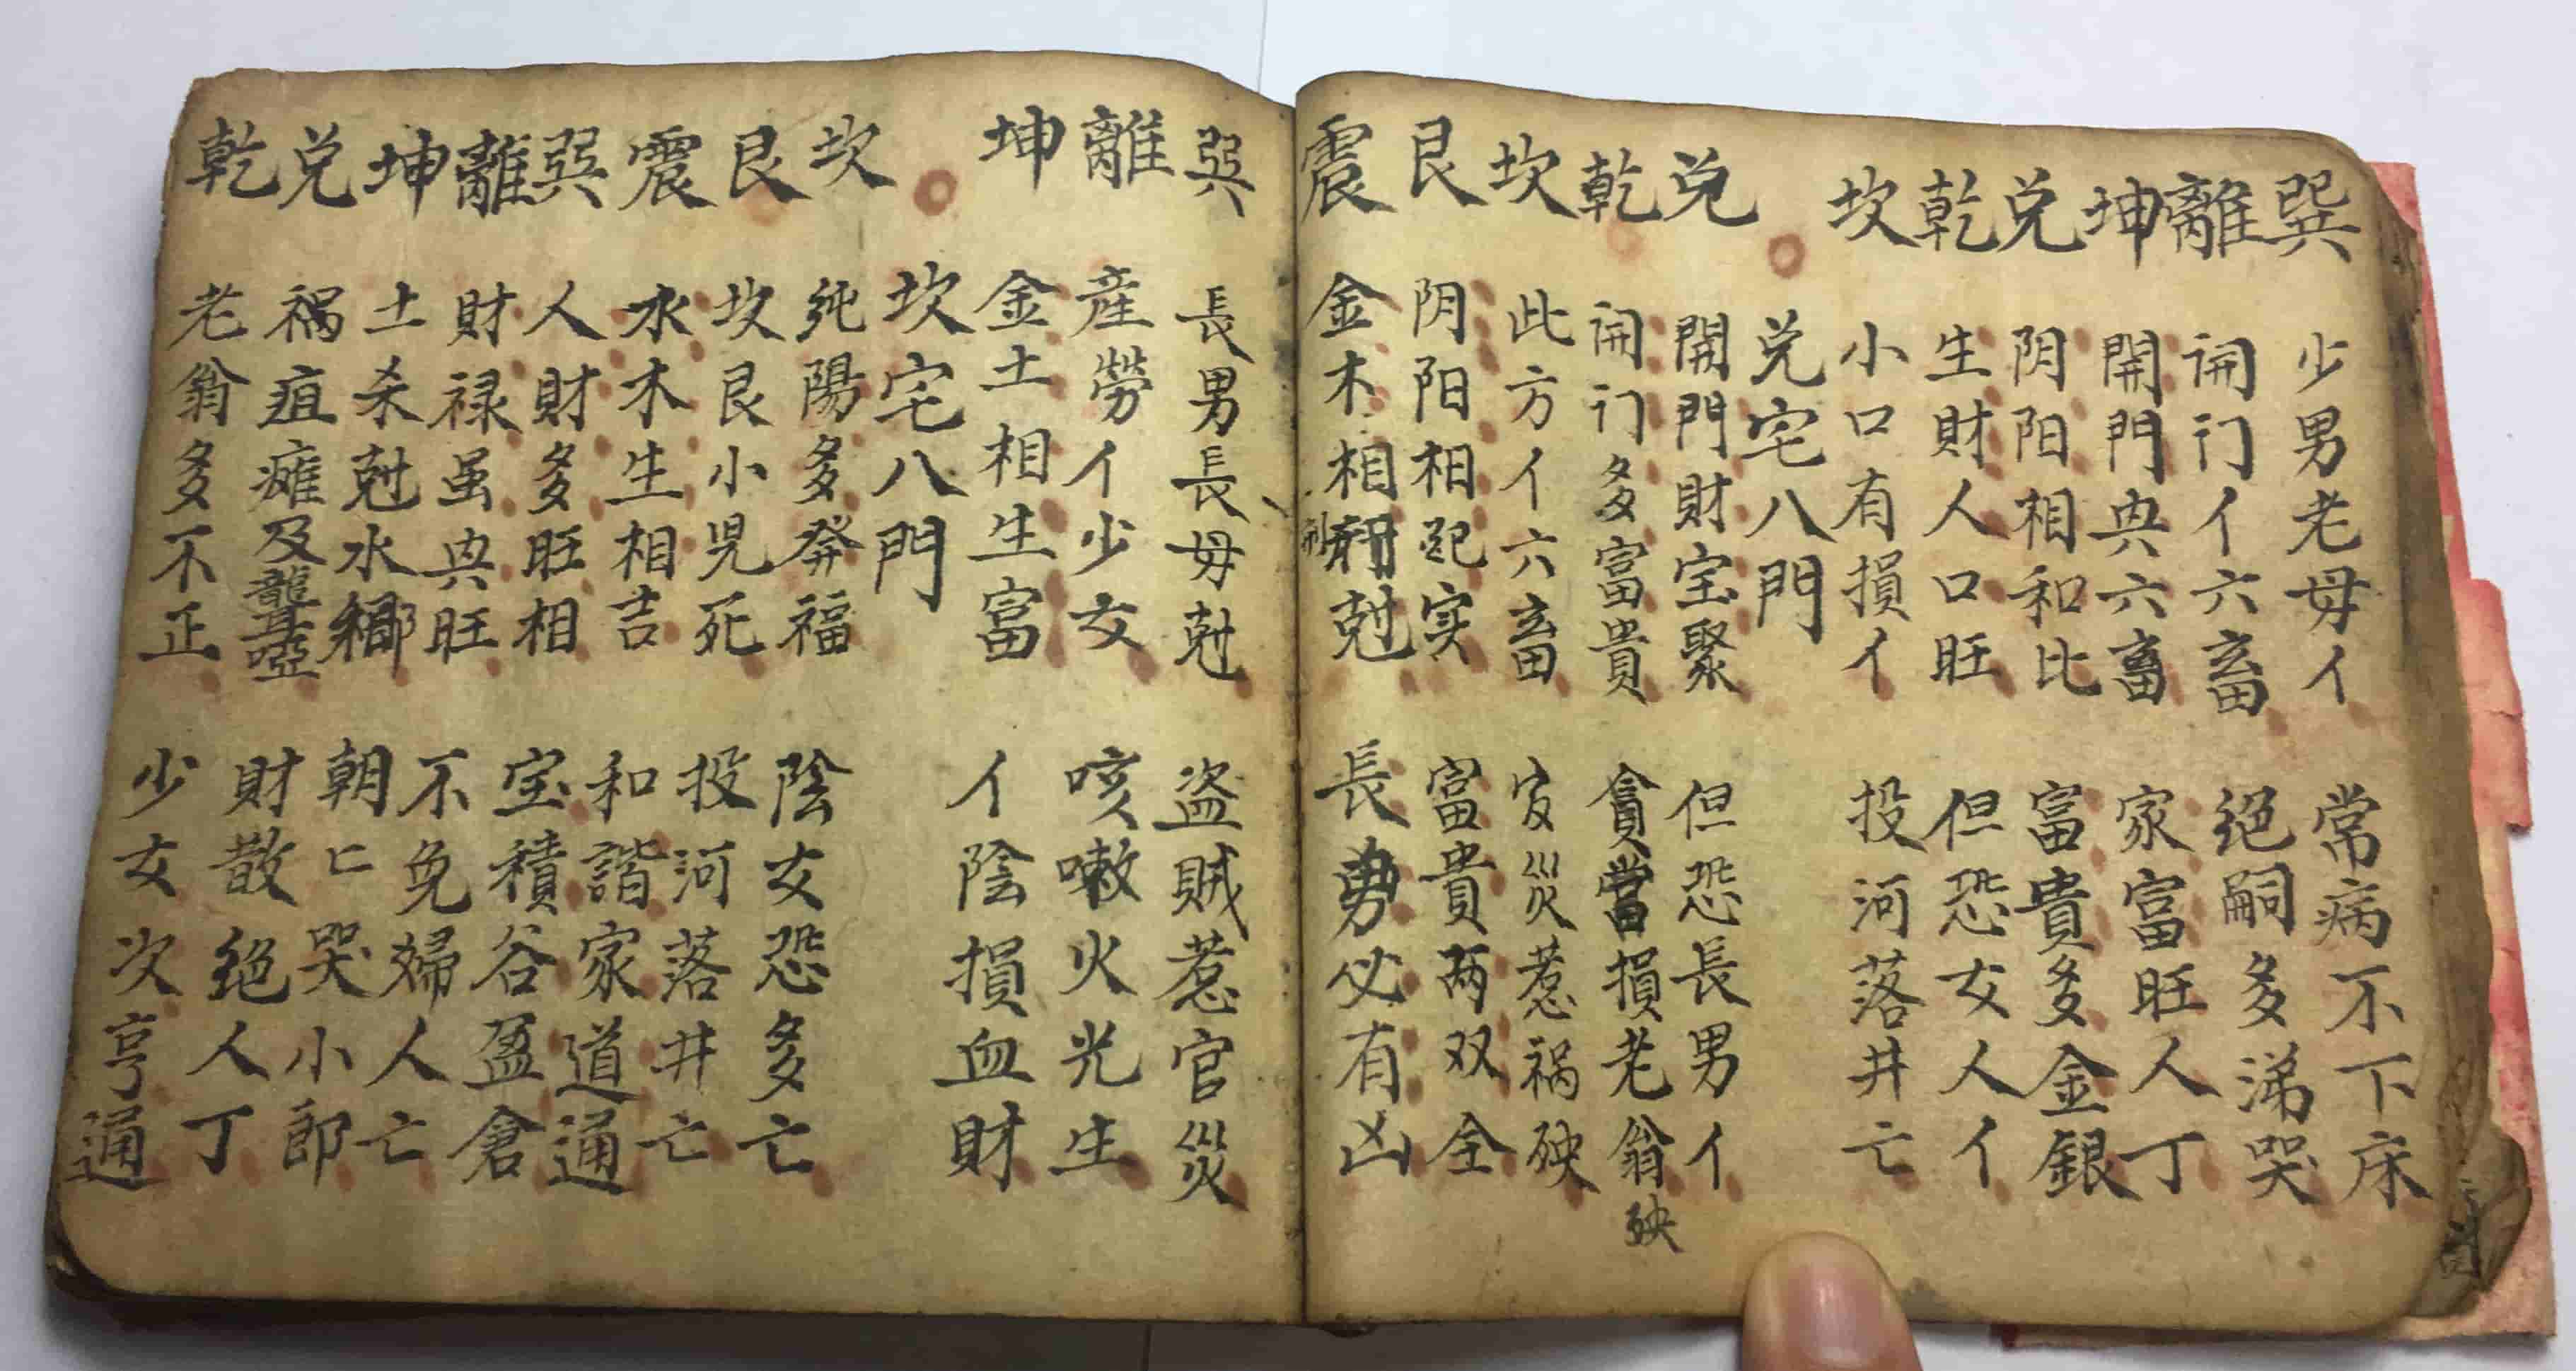 巽 少男老母亻 常病不下床
離 開门亻六畜 絕嗣多涕哭
坤 開門興六畜 家富旺人丁
兌 阴阳相和比 富貴多金銀
乾 生財人口旺 但恐女人亻
坎 小口有損亻 投河落井亡
兌宅八門
兌 開門財宝聚 但恐長男亻
乾 開门多富貴 貪當損老翁殃
坎 此方亻六畜 官災惹禍殃
艮 阴阳相起实 富貴两双全
震 金木相刑尅 長男必有凶
巽 長男長母尅 盗賊惹官災
離 産勞亻少女 咳嗽火光生
坤 金土相生富 亻陰損血財
坎宅八門
坎 純陽多發福 陰女恐多亡
艮 坎艮小児死 投河落井亡
震 水木生相吉 和諧家道通
巽 人財多旺相 宝積谷盈倉
離 財禄虽興旺 不免婦人亡
坤 土杀尅水 朝〻哭小郎
兌 禍疽瘫及聾啞 財散絕人丁
乾 老翁多不正 少女次亨通